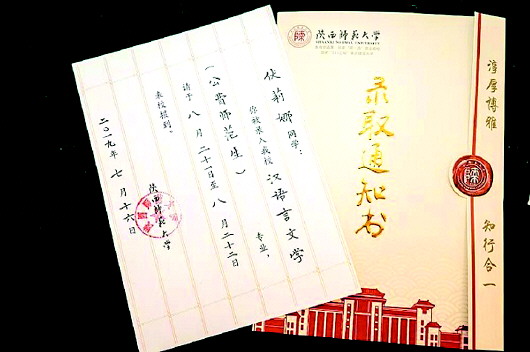 伏莉娜同学：
你被录入我校 汉语言文学
（公费师范生）专业，
请于八月二十一日至八月二十二日
来校报到。
陕西师范大学
二〇一九年七月十六日
陕西师范大学
SHAANXI NORMAL UNIVERSITY
录取通知书
淳厚博雅
陝
知行合一